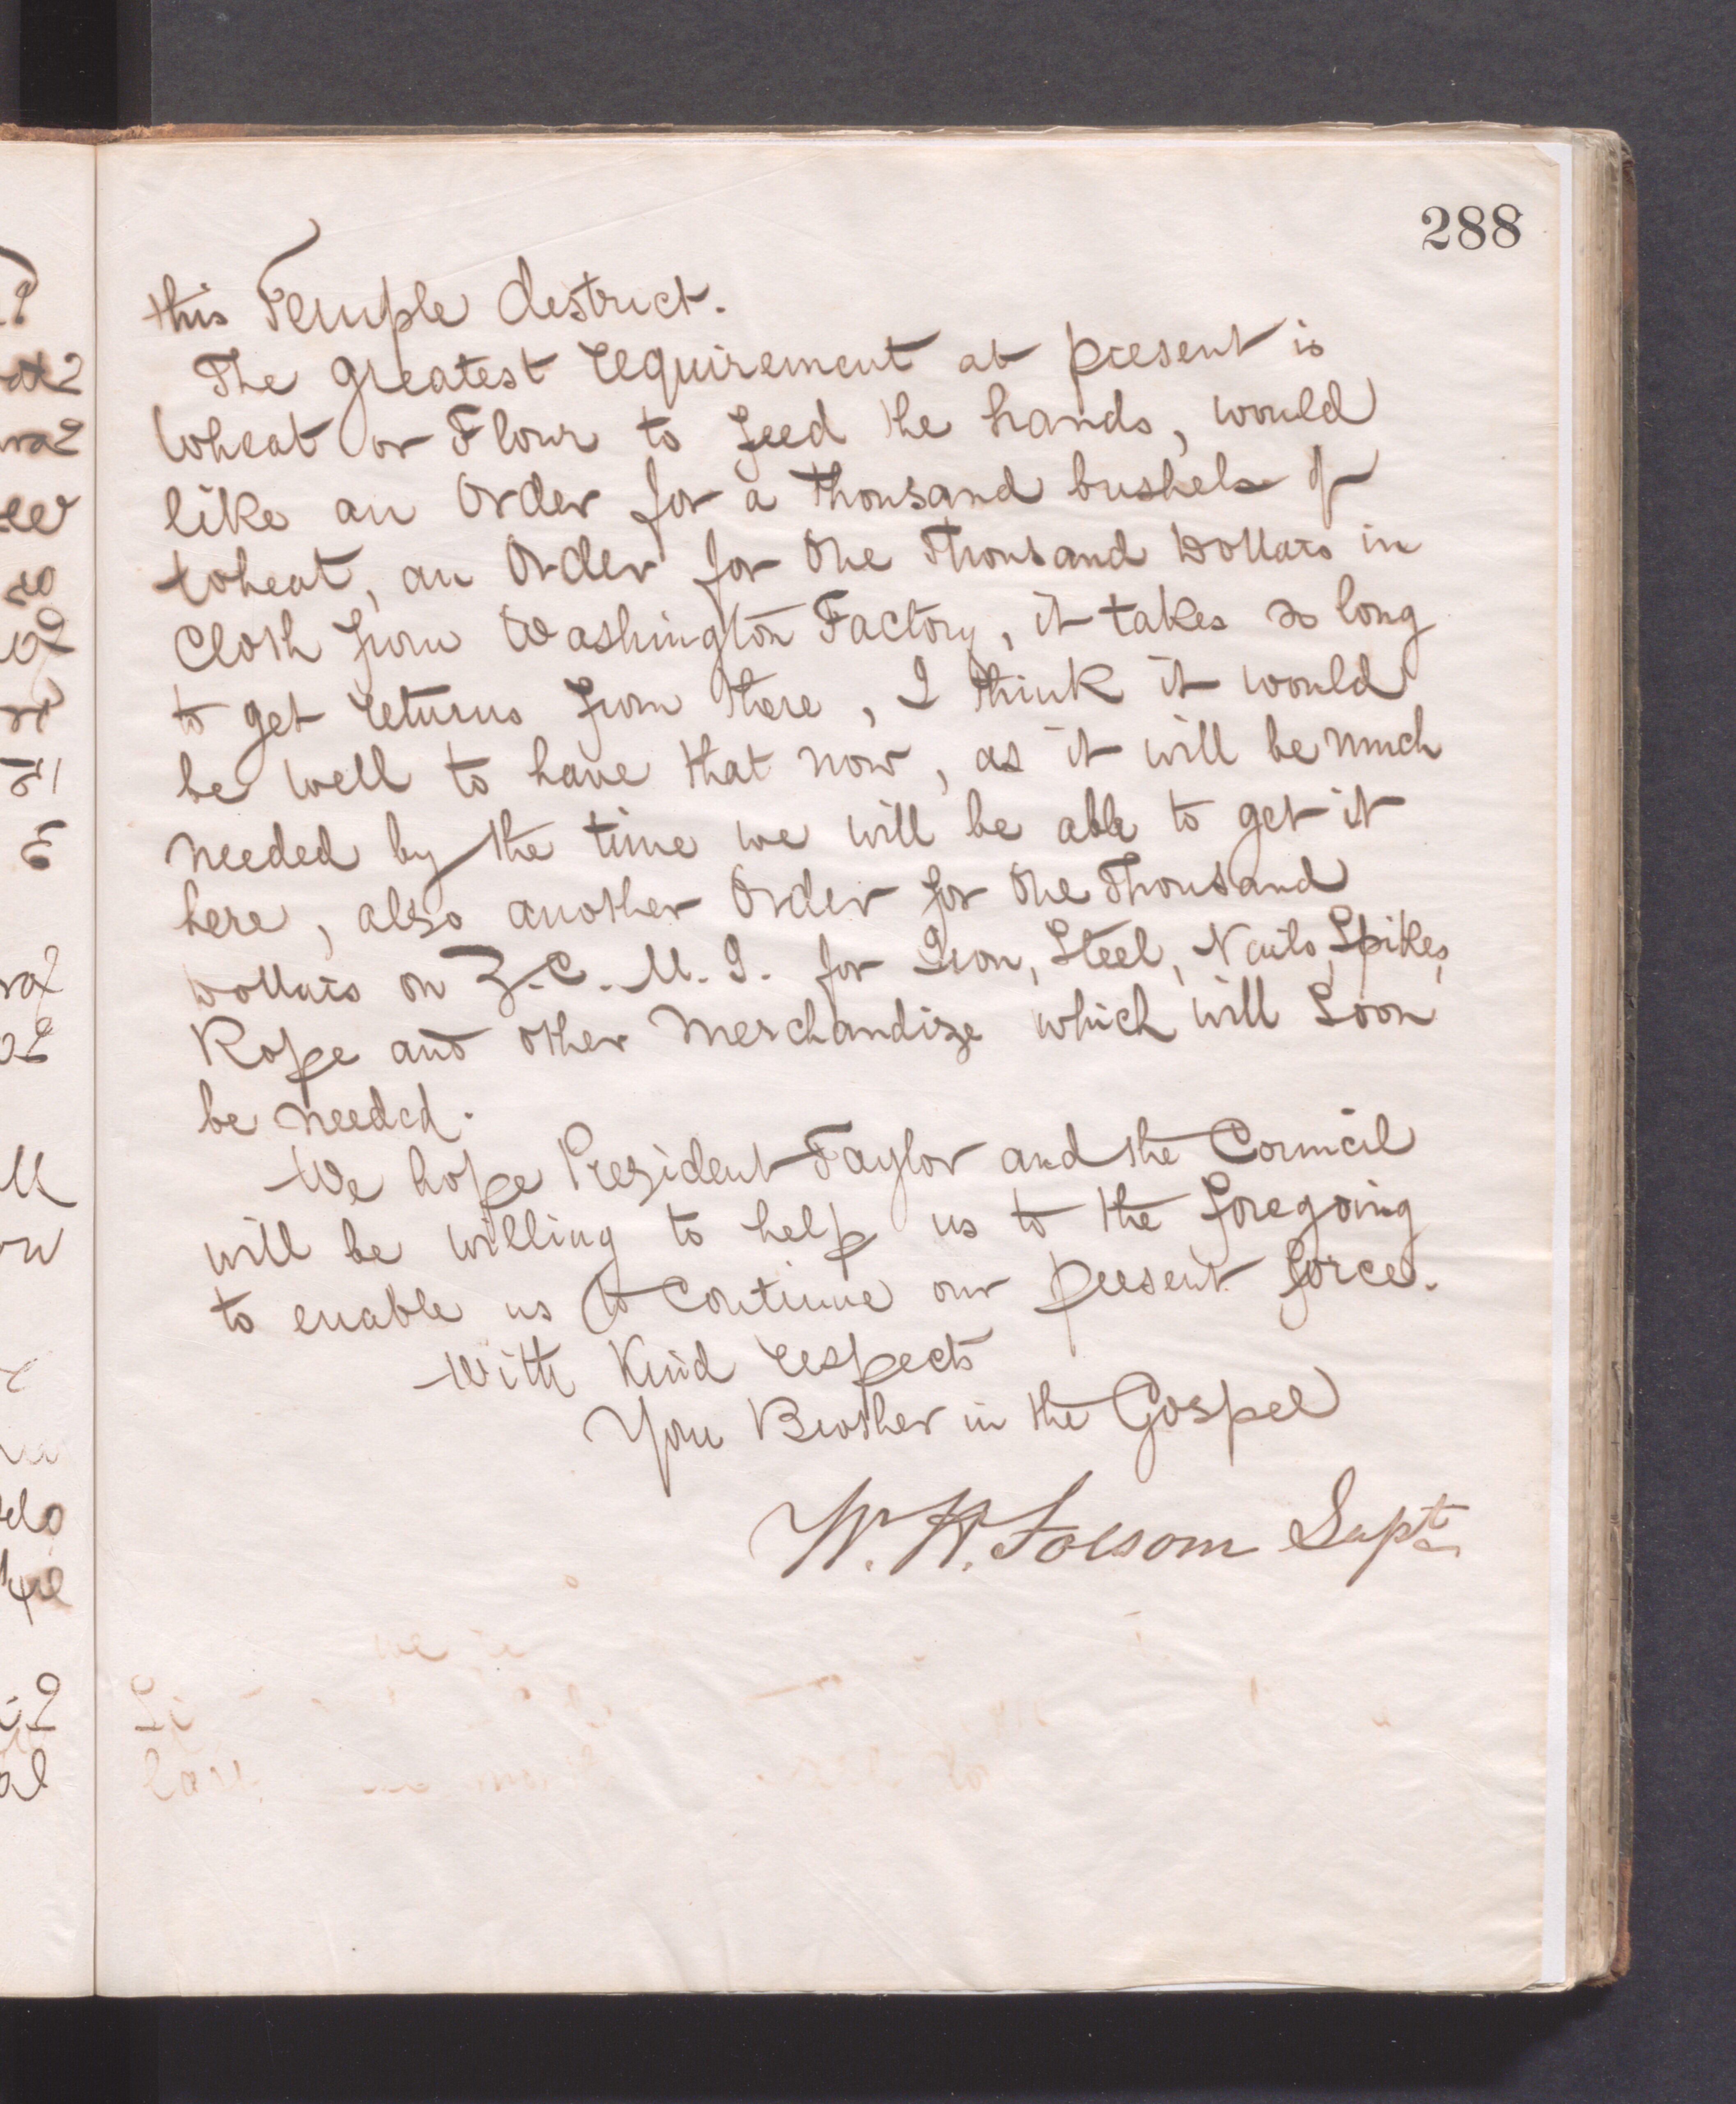 288
this Temple destrict.
The greatest requirement at present is
Wheat or Flour to feed the hands, would
like an Order for a thousand bushels of
wheat, an Order for One Thousand Dollars in
Cloth from Washington Factory, it takes so long
to get returns from there, I think it would
be well to have that now, as it will be much
needed by the time we will be able to get it
here, also another Order for One Thousand
Dollars on Z.C.M.I. for Iron, Steel, Nails, Spikes,
Rope and other Merchandize which will Soon
be needed.
We hope President Taylor and the Council
will be willing to help us to the foregoing
to enable us to Continue our present force.
With Kind respects
Your Brother in the Gospel
W. H. Folsom Supt